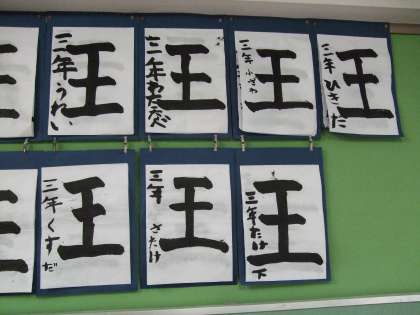 王
三年うれい
王
三年
王
三年ふざわ
王
三年ひきた
王
三年くすだ
王
三年さたけ
王
三年たけ下